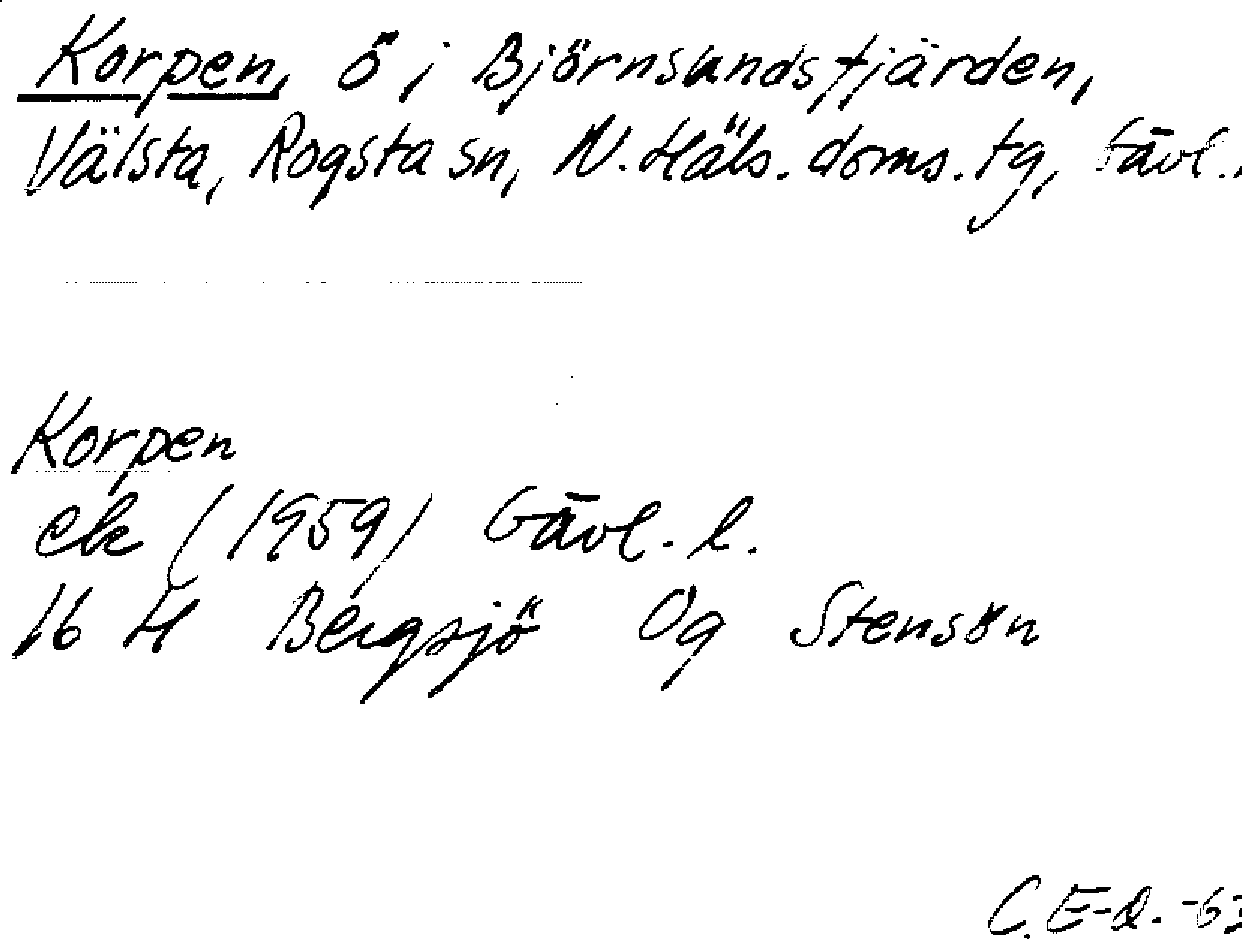 Korpen, ö i Björnsundsfjärden,
Välsta, Rogsta sn, N. Häls. doms. tg, Gävl.
Korpen
ek (1959) Gävl. l.
16 H Bergsjö 0g Stensön
C. E-d. -63